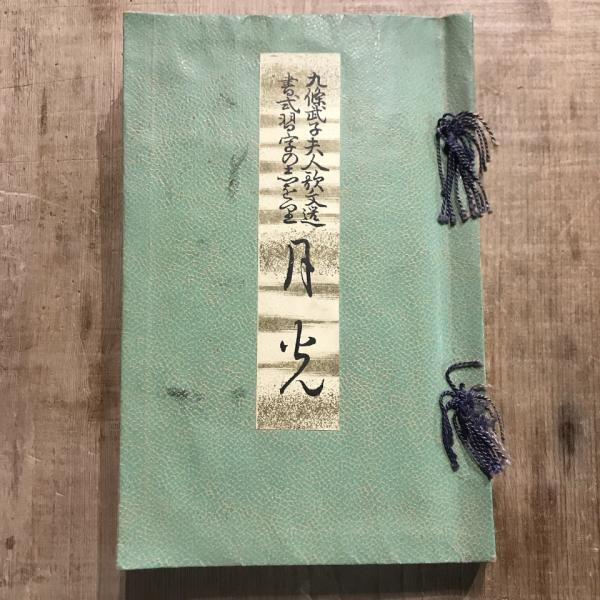 九條武子夫人歌文選
書式習字のしをり
月光